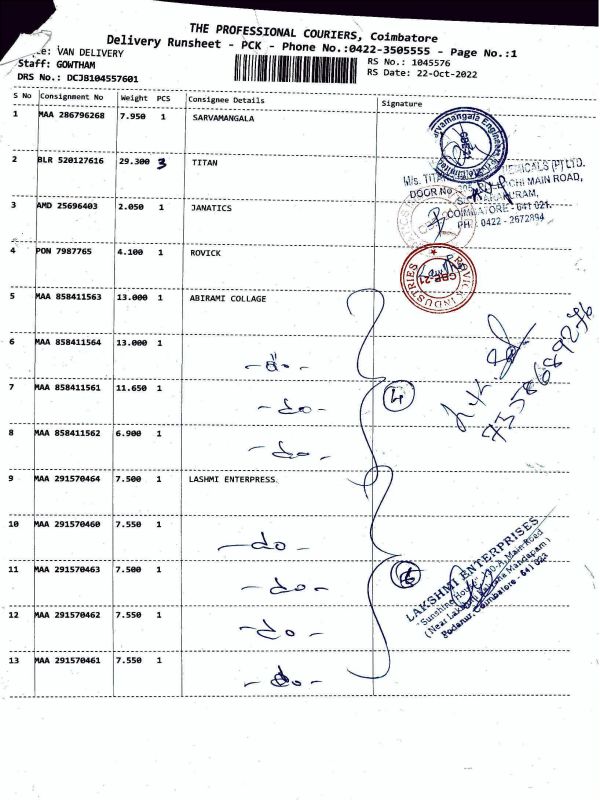 THE PROFESSIONAL COURIERS, Coimbatore
Delivery Runsheet - PCK - Phone No.:0422-3505555 - Page No.:1
VAN DELIVERY
Staff: GOWTHAM
DRS No.: DCJB104557601
RS No.: 1045576
RS Date: 22-Oct-2022
S No Consignment No Weight PCS Consignee Details Signature
1 MAA 286796268 7.950 1 SARVAMANGALA
2 BLR 520127616 29.300 3 TITAN
3 AMD 25696403 2.050 1 JANATICS
4 PON 7987765 4.100 1 ROVICK
5 MAA 858411563 13.000 1 ABIRAMI COLLAGE
6 MAA 858411564 13.000 1 -do-
7 MAA 858411561 11.650 1 -do-
8 MAA 858411562 6.900 1 -do-
9 MAA 291570464 7.500 1 LASHMI ENTERPRESS
10 MAA 291570460 7.550 1 -do-
11 MAA 291570463 7.500 1 -do-
12 MAA 291570462 7.550 1 -do-
13 MAA 291570461 7.550 1 -do-
M/s. TITAN
MICALS (P) LTD.
DOOR No.
MAIN ROAD,
COIMBATORE - 641 021.
PH : 0422 - 2672894
ROVICK INDUSTRIES
CBE-21
4
LAKSHMI ENTERPRISES
"Sunshine House"
Main Road
(Near Lakshmi Kalyana Mandapam)
Podanur, Coimbatore - 641 023